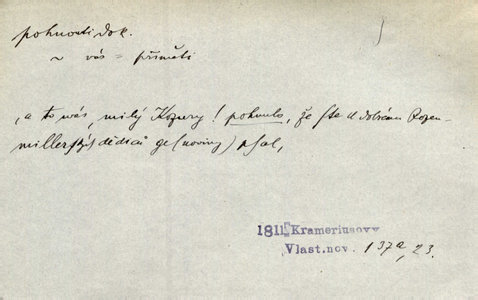 pohnouti dok.
~ vás = přiměti
„a to wás, milý Kozury! pohnulo, že ste d dobrém Rozen-
millerských dědiců ge(noviny) psal,
1811 Krameriusovy
Vlast.nov. 137a, 23.